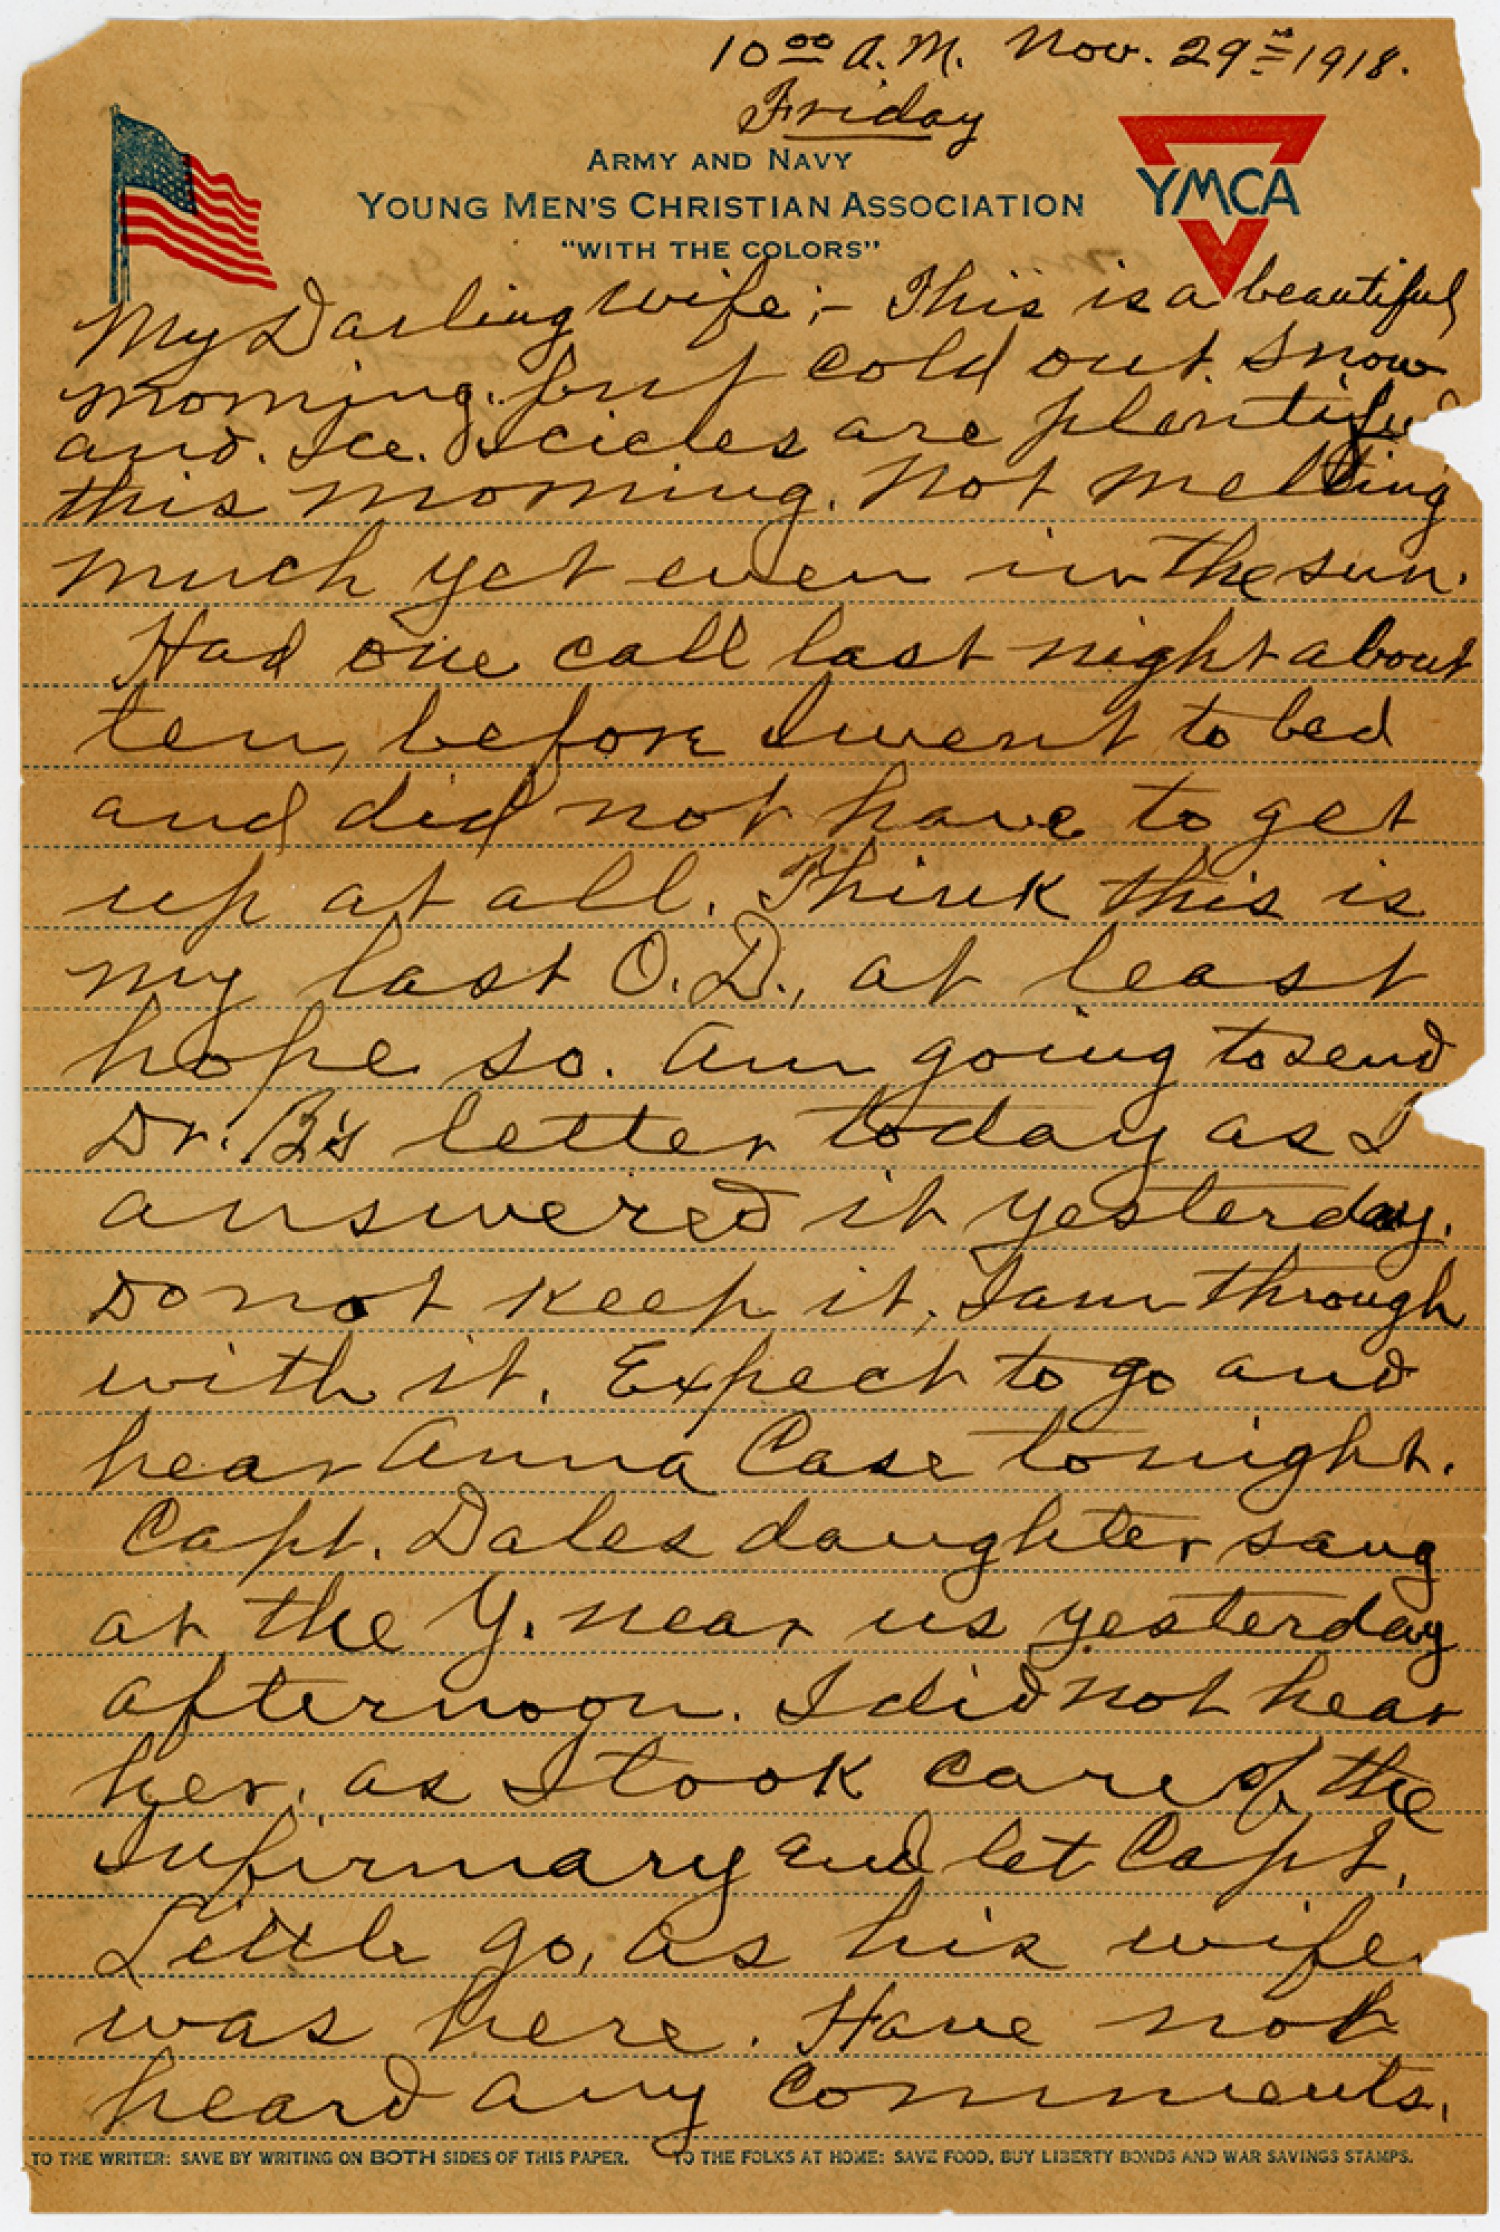 10 00 A.M. Nov. 29th 1918.
Friday
ARMY AND NAVY
YOUNG MEN'S CHRISTIAN ASSOCIATION
"WITH THE COLORS"
YMCA
My Darling Wife;- This is a beautiful
morning. but cold out. Snow
and. Ice. Icicles are plentiful
this morning. Not melting
much yet even in the sun.
Had one call last night about
ten, before I went to bed
and did not have to get
up at all. Think this is
my last O.D., at least
hope so. Am going to send
Dr. B's letter today as I
answered it yesterday.
Do not keep it, I am through
with it. Expect to go and
hear Anna Case tonight.
Capt. Dales daughter sang
at the Y. near us yesterday
afternoon. I did not hear
her, as I took care of the
Infirmary and let Capt.
Little go, as his wife
was here. Have not
heard any comments.
TO THE WRITER: SAVE BY WRITING ON BOTH SIDES OF THIS PAPER. TO THE FOLKS AT HOME: SAVE FOOD, BUY LIBERTY BONDS AND WAR SAVINGS STAMPS.